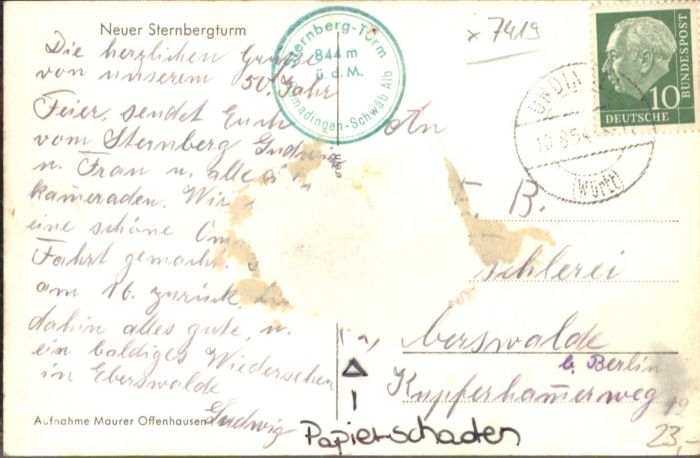 Neuer Sternbergturm
Die herzlichen Grüße
von unserem 50 Jahr
Feier, sendet Euch
vom Sternberg Ludwig
u. Frau u. alle
kameraden. Wir
eine schöne Om
Fahrt gemacht.
am 16. zurück
dahin alles gute, u.
ein baldiges Wiedersehen
in Eberswalde
Ludwig
Aufnahme Maurer Offenhausen
Sternberg-Turm
844 m
ü.d.M.
Gomadingen-Schwäb Alb
x 7419
UNDI
10.8.54
(Württ)
10
DEUTSCHE
BUNDESPOST
An
B.
schlerei
berswalde
b. Berlin
Kupferhammerweg 12
23,-
Papier-schaden